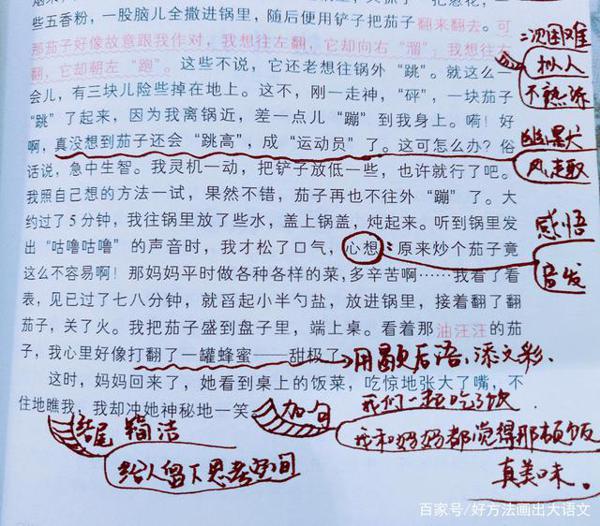 些五香粉，一股脑儿全撒进锅里，随后便用铲子把茄子翻来翻去。可
那茄子好像故意跟我作对，我想往左翻，它却向右“溜”；我想往右
翻，它却朝左“跑”。这些不说，它还老想往锅外“跳”。就这么一
会儿，有三块儿险些掉在地上。这不，刚一走神，“砰”，一块茄子
“跳”了起来，因为我离锅近，差一点儿“蹦”到我身上。嗬！好
啊，真没想到茄子还会“跳高”，成“运动员”了。这可怎么办？俗
话说，急中生智。我灵机一动，把铲子放低一些，也许就行了吧。
我照自己想的方法一试，果然不错，茄子再也不往外“蹦”了。大
约过了5分钟，我往锅里放了些水，盖上锅盖，炖起来。听到锅里发
出“咕噜咕噜”的声音时，我才松了口气，心想：原来炒个茄子竟
这么不容易啊！那妈妈平时做各种各样的菜，多辛苦啊……我看了看
表，见已过了七八分钟，就舀起小半勺盐，放进锅里，接着翻了翻
茄子，关了火。我把茄子盛到盘子里，端上桌。看着那油汪汪的茄
子，我心里好像打翻了一罐蜂蜜——甜极了。
这时，妈妈回来了，她看到桌上的饭菜，吃惊地张大了嘴，不
住地瞧我，我却冲她神秘地一笑。
二次困难
拟人
不熟练
幽默
风趣
感悟
音发
用歇后语，添文彩.
结尾 简洁
给人留下思考空间
加一句
我们一起吃了饭
我和妈妈都觉得那顿饭
真美味。
百家号/好方法画出大语文